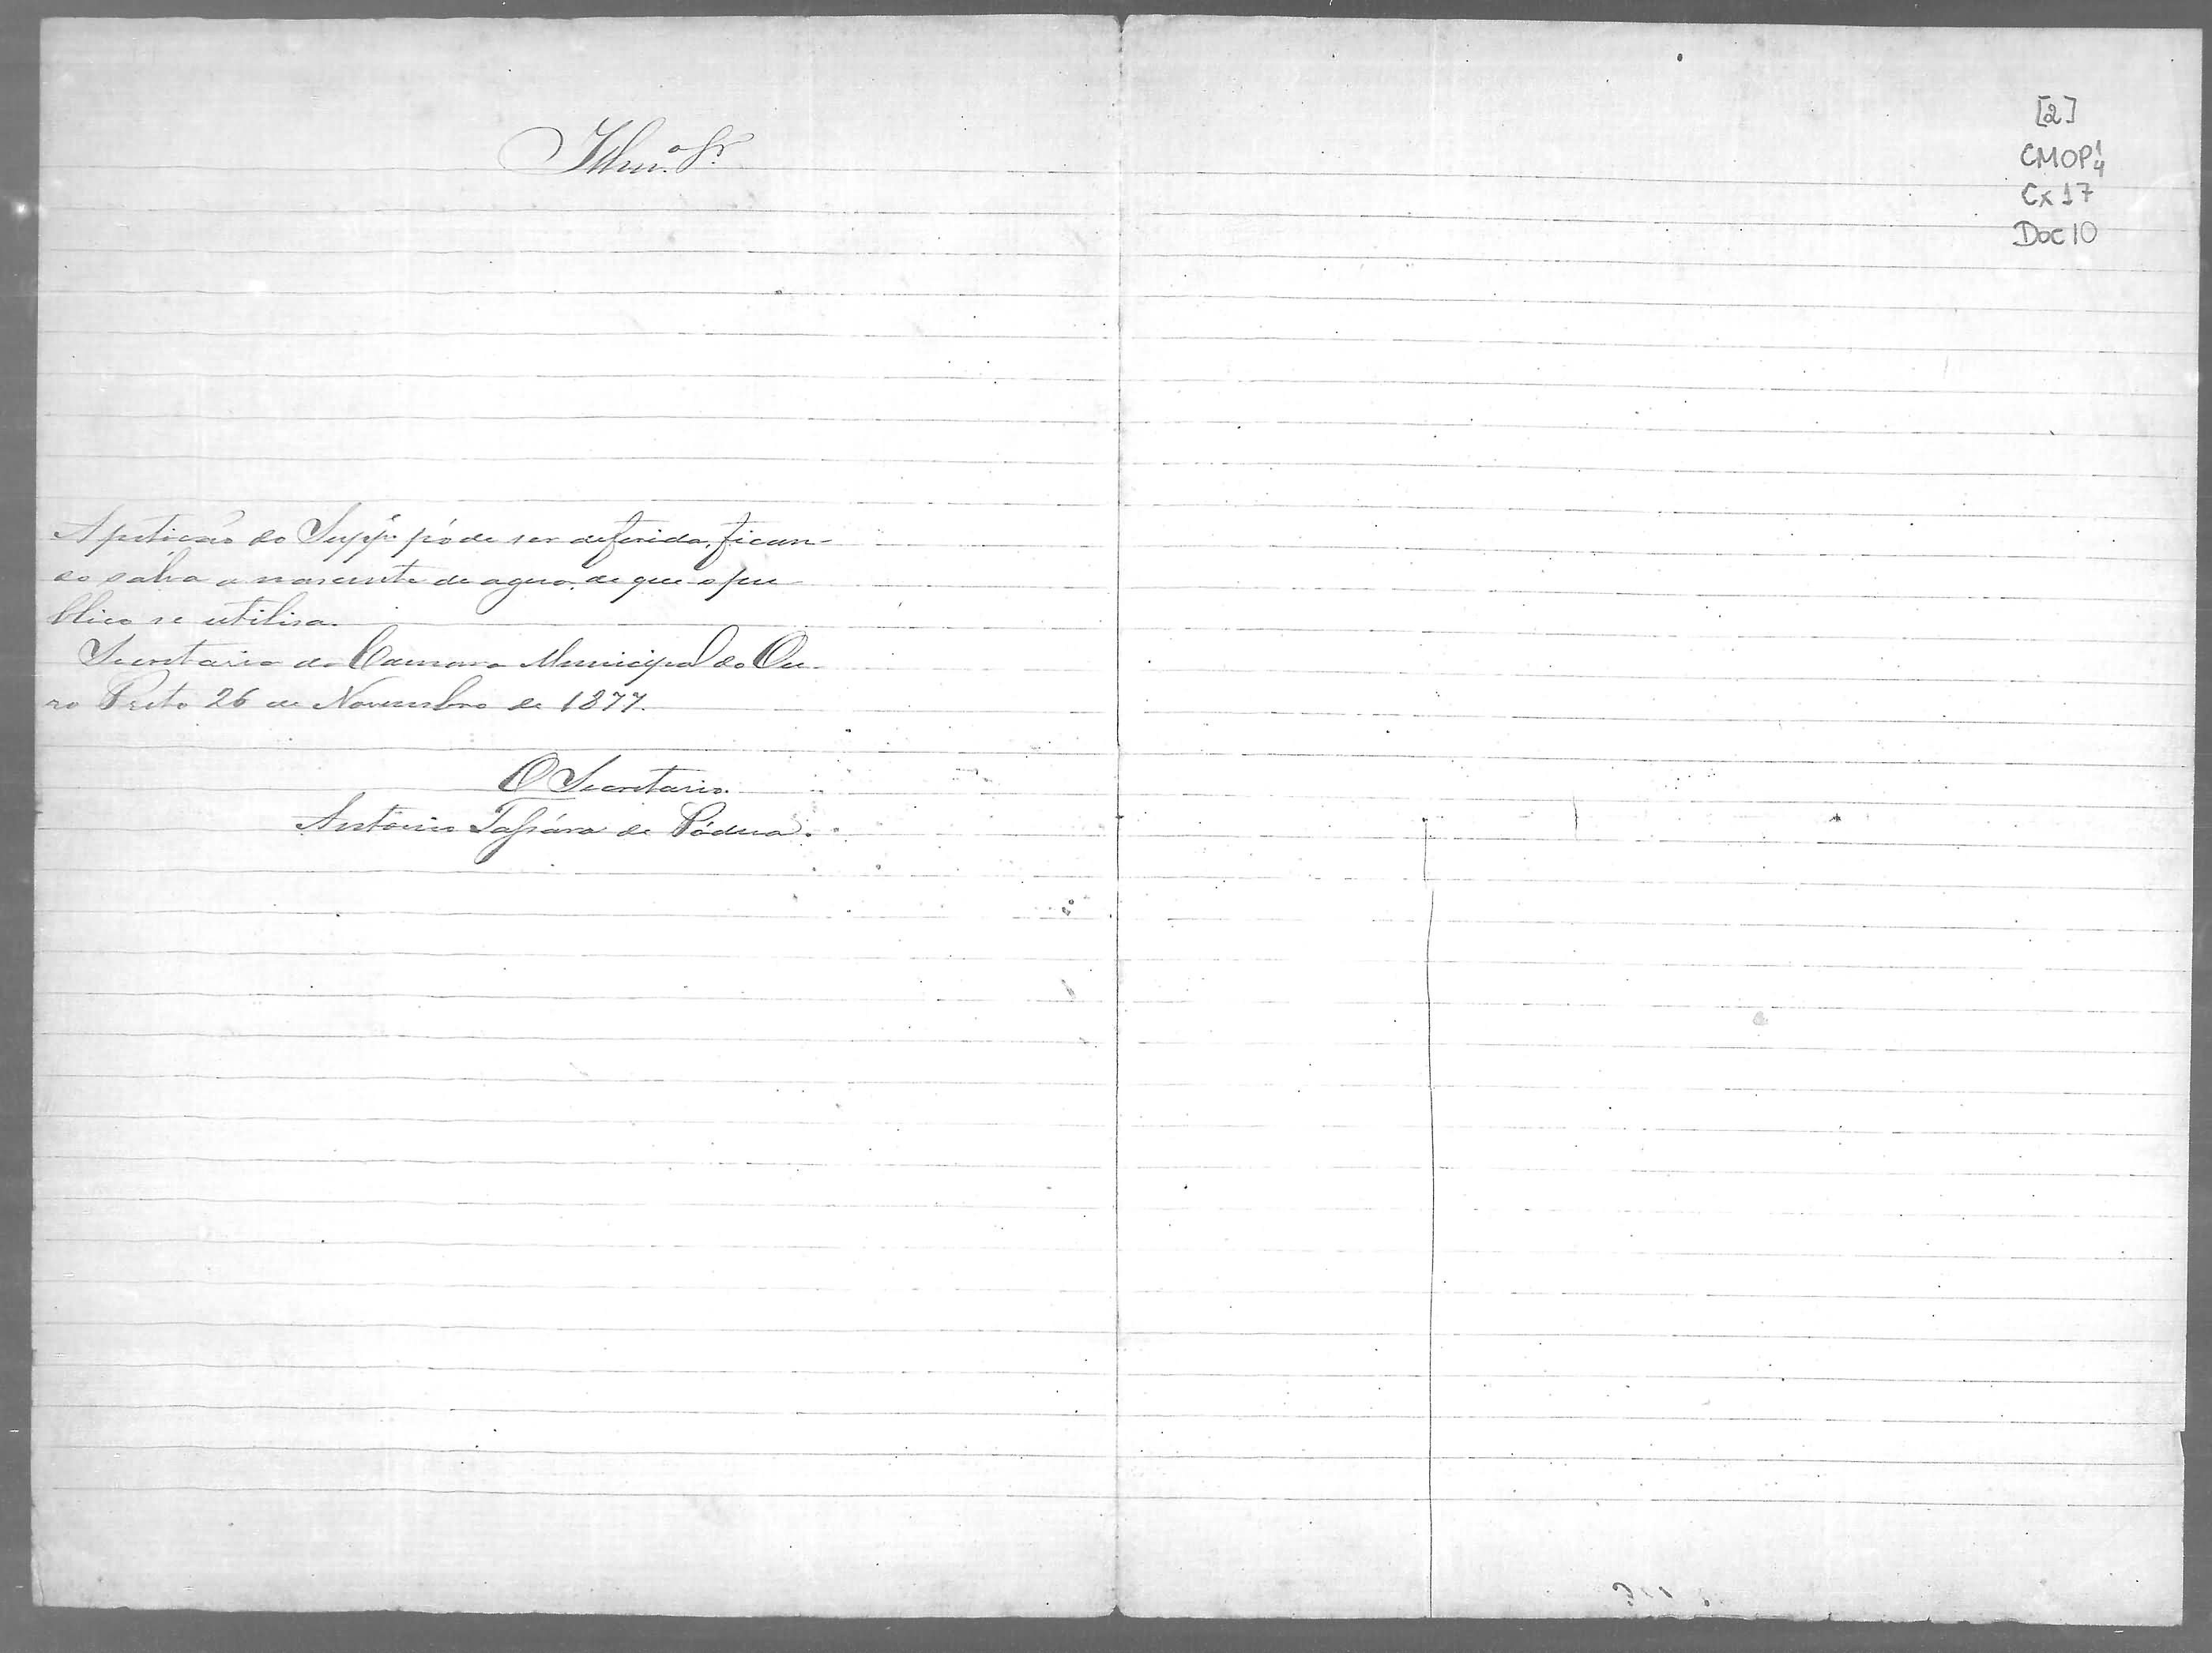 Illmo. Sr.
A petição do Suppe. póde ser deferida, fican-
do salva a nascente de agua de que o pu-
blico se utilisa.
Secretaria da Camara Municipal do Ou-
ro Preto 26 de Novembro de 1877.
O Secretario.
Antonio de Pádua.
[2]
CMOP 1/4
Cx 17
Doc 10